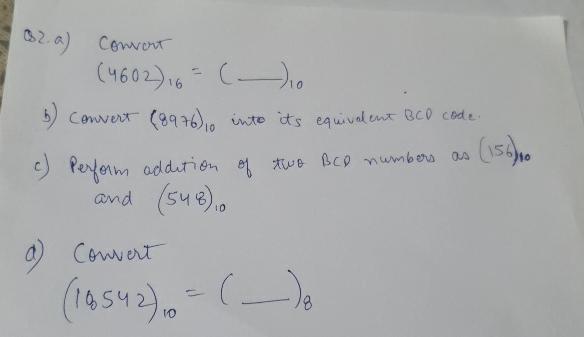 Q2. a) Convert
(4602)16 = ( __ )10
b) Convert (8976)10 into its equivalent BCD code.
c) Perform addition of two BCD numbers as (156)10
and (548)10
d) Convert
(18542)10 = ( __ )8